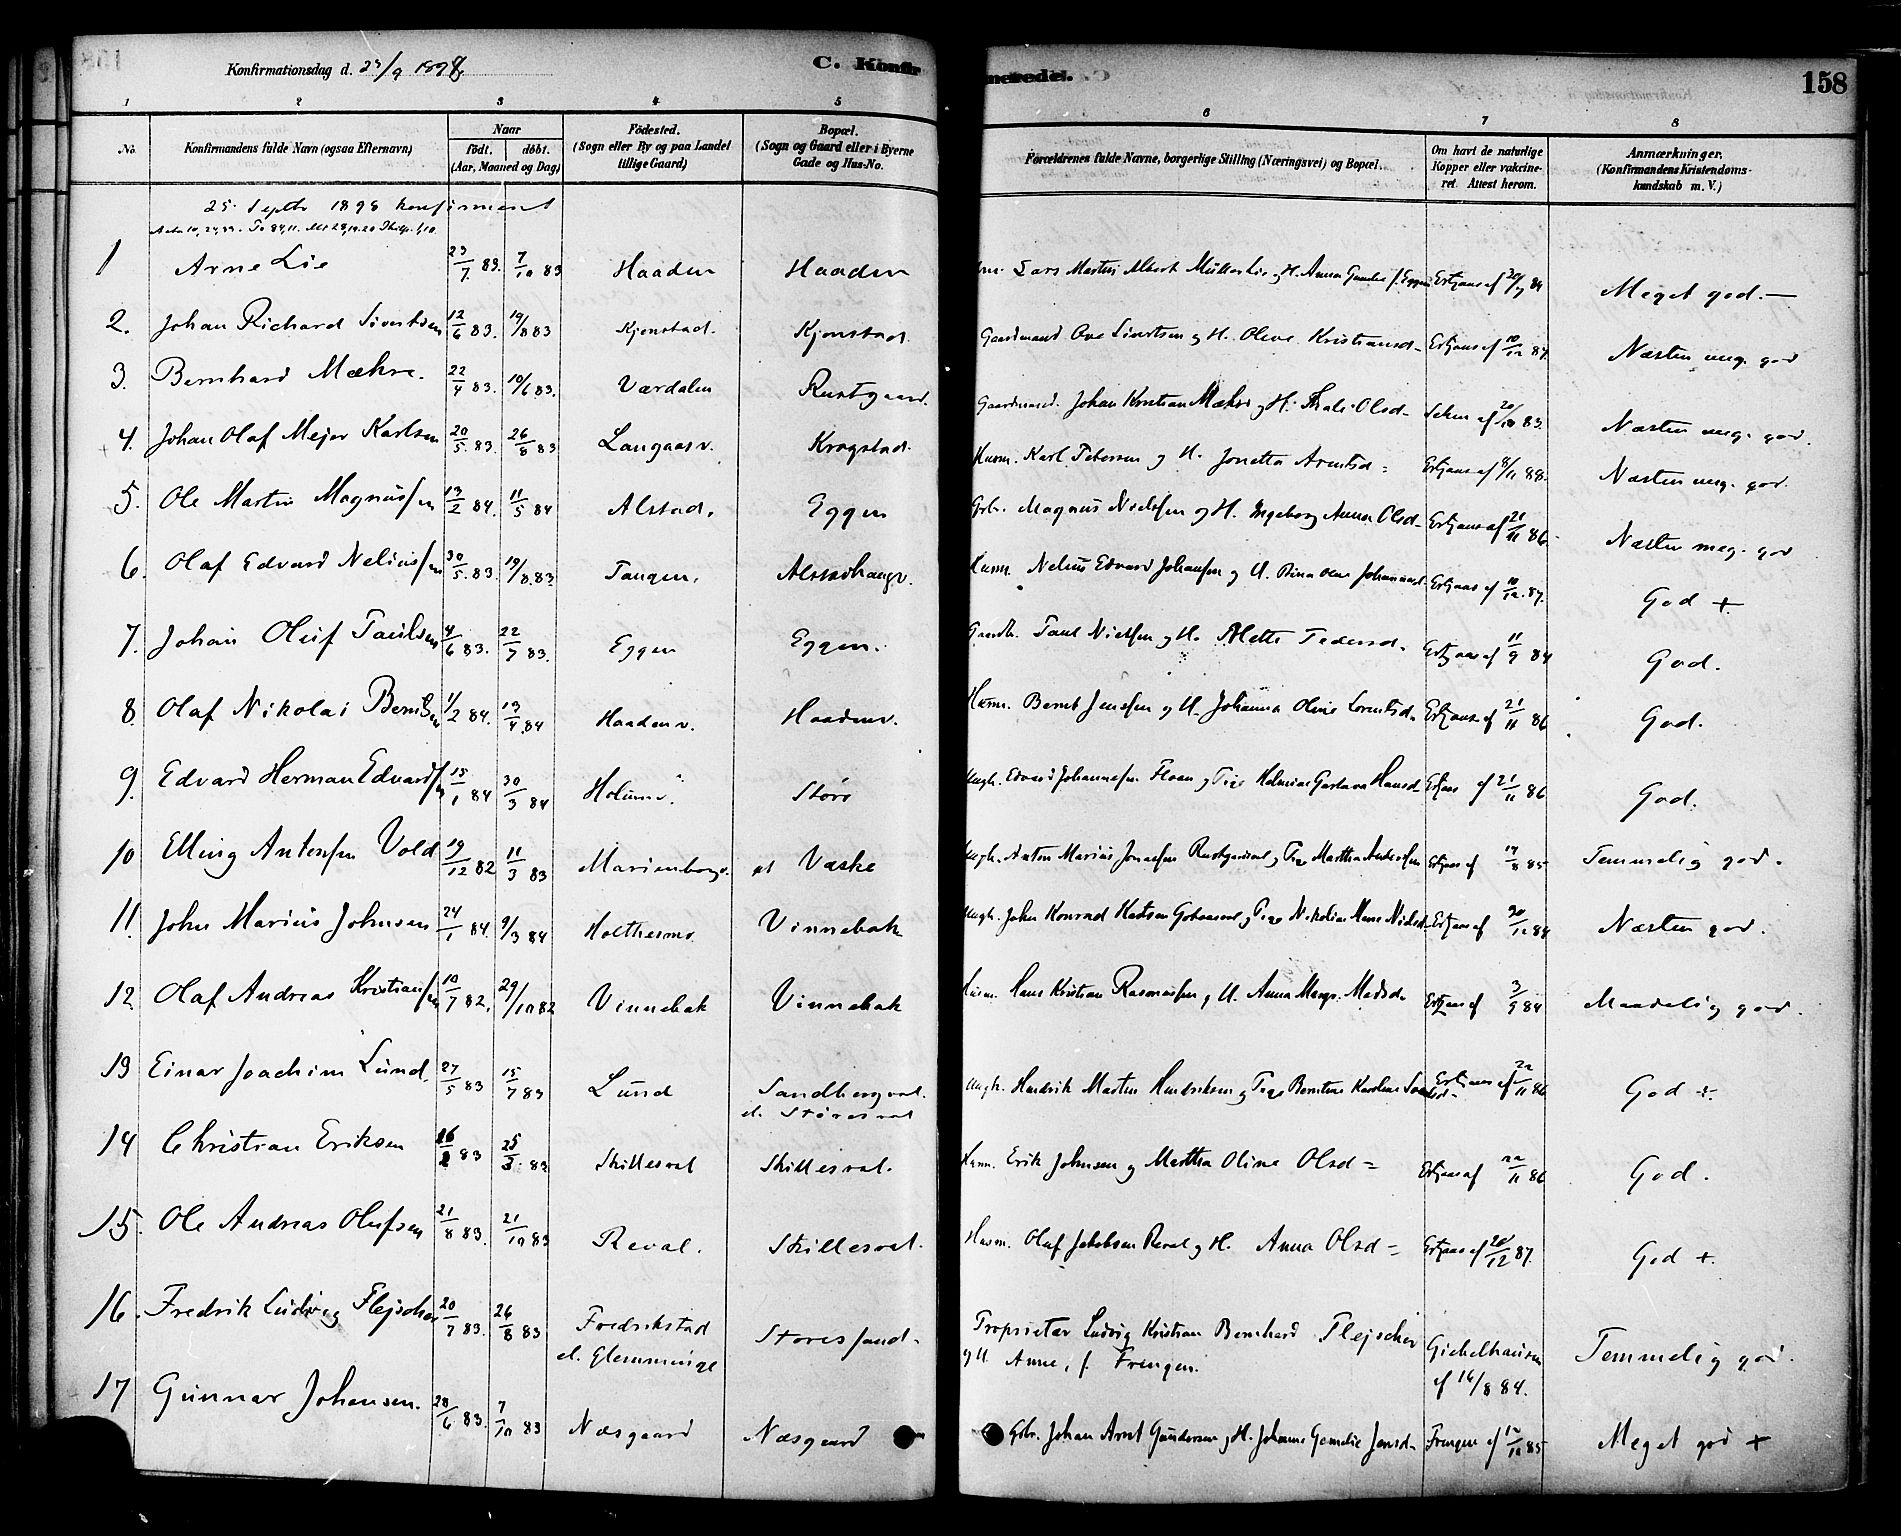 Konfirmationsdag d. 25/9 1898
C. Konfirmerede.
158
1 2 3 4 5 6 7 8
No.
Konfirmandens fulde Navn (ogsaa Efternavn)
Naar
født. døbt.
(Aar, Maaned og Dag)
Fødested.
(Sogn eller By og paa Landet tillige Gaard)
Bopæl.
(Sogn og Gaard eller i Byerne Gade og Hus-No.
Forældrenes fulde Navne, borgerlige Stilling (Næringsvei) og Bopæl.
Om havt de naturlige Kopper eller vakcineret. Attest herom.
Anmærkninger.
(Konfirmandens Kristendomskundskab m. V.)
25. Septbr 1898 konfirmeret
1 Arne Lie 23/7 83. 7/10 83 Haaden Haaden Lars Martin Albert Müller Lie og H. Anna f. Eggen Ertzaas af 20/9 84 Meget god.
2. Johan Richard Sivertsen 12/6 83. 19/8 83 Kjønstad. Kjønstad. Gaardmand Ove Sivertsen og H. Oline Kristiansd. Ertzaas af 10/12 84. Næsten meg. god
3. Bernhard Mæhre. 22/4 83. 10/6 83. Værdalen Rustgaard. Gaardmand. Johan Kristian Mæhre og H. Olsd. af 20/10 83. Næsten meg. god.
4. Johan Olaf Mejer Karlsen 20/5. 83. 26/8 83 Langaasv. Kragstad. Husm. Karl Petersen og H. Jonetta Arntsd. Ertzaas af 8/11 88. Næsten meg. god.
5. Ole Martin Magnussen 13/2 84. 11/5 84 Alstad. Eggen Gbr. Magnus Nielssen og H. Ingeborg Anna Olsd. Ertzaas af 21/11 86. Næsten meg. god
6. Olaf Edvard Neliussen 30/5. 83. 19/8. 83. Tangen. Alstadhaugv. Husm. Nelius Edvard Johansen og H. Johannesd. Ertzaas af 10/12. 87. God +
7. Johan Oluf Paulsen 4/6 83. 22/7 83. Eggen Eggen. Gaardb. Paul Nielsen og H. Mette Pedersd. Ertzaas af 11/9 84 God.
8. Olaf Nikolai Berntsen 1/2 84. 13/4. 84 Haadenv. Haadenv. Husm. Bernt Jenssen og H. Johanna Oline Lorentsd. Ertzaas af 21/11 86 God.
9. Edvard Herman Edvardsen 15/1 84 30/3 84 Holumv. Støre Ungk. Edvard Johannesen Floan og Pige Gustava Hansd. Ertzaas af 21/11 86 God.
10 Elling Antonsen Vold 19/12 82 11/3 83 Marienborgv. pl Vaske Ungk. Anton Marius Jonassen og Pige Martha Andersen Ertzaas af 14/8 85 Temmelig god.
11. John Marius Johnsen 24/1 84. 9/3 84 Holthesmv. Vinnebak Ungk. John Konrad og Pige Nikoline Nielsd. Ertzaas af 30/12 84 Næsten god.
12. Olaf Andreas Kristiansen 10/7 82. 29/10 82 Vinnebak Vinnebak Husm. Hans Kristian Rasmussen og H. Anna Marg. Madsd. Ertzaas af 3/9 84 Maadelig god.
13 Einar Joachim Lund. 27/5 83 15/7 83 Lund Sandbergval.
el. Støresval Ungk. Hendrik Martin Hendriksen og Pige Karoline Ertzaas af 22/11 86 God +.
14 Christian Eriksen 83 25/3. 83 Skillesval Skillesval. Husm. Erik Johnsen og Martha Oline Olsd. Ertzaas af 22/11 86 God.
15. Ole Andreas Olufsen 21/8 83. 21/10 83 Reval. Skillesval. Husm. Oluf Jakobsen Reval og H. Anna Olsd. Ertzaas af 20/12 87. God +.
16. Fredrik Ludvig Flejscher 20/7 83. 26/8 83 Fredrikstad
el. Glemminge Støresund. Proprietær Ludvig Kristian Bernhard Flejscher
og H. Anne, f. Frengen. Gickelhausen
af 16/8 84. Temmelig god.
17 Gunnar Johansen. 28/6 83. 7/10 83 Næsgaard Næsgaard Gbr. Johan Arnt Gundersen og H. Johanne Jensd. Frengen af 12/10 85 Meget god +